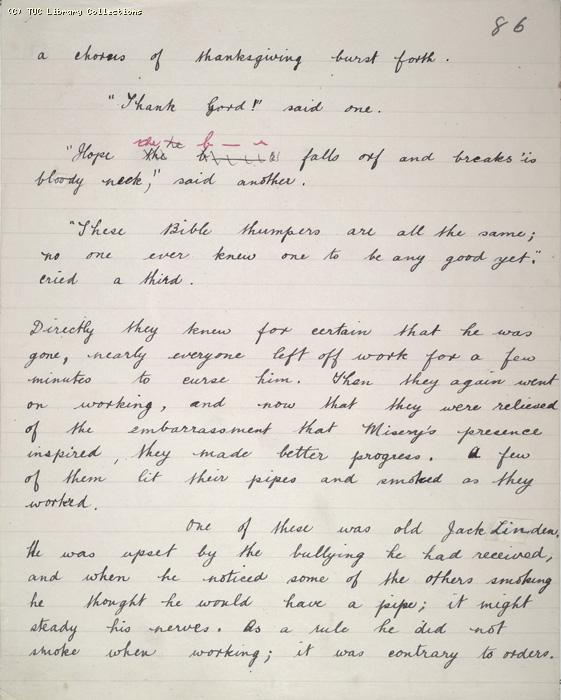 (C) TUC Library Collections
86
a chorus of thanksgiving burst forth.
"Thank Gord!" said one.
the b—r
"Hope falls orf and breaks 'is
bloody neck," said another.
"These Bible thumpers are all the same;
no one ever knew one to be any good yet."
cried a third.
Directly they knew for certain that he was
gone, nearly everyone left off work for a few
minutes to curse him. Then they again went
on working, and now that they were relieved
of the embarrassment that Misery's presence
inspired, they made better progress. A few
of them lit their pipes and smoked as they
worked.
One of these was old Jack Linden.
He was upset by the bullying he had received,
and when he noticed some of the others smoking
he thought he would have a pipe; it might
steady his nerves. As a rule he did not
smoke when working; it was contrary to orders.